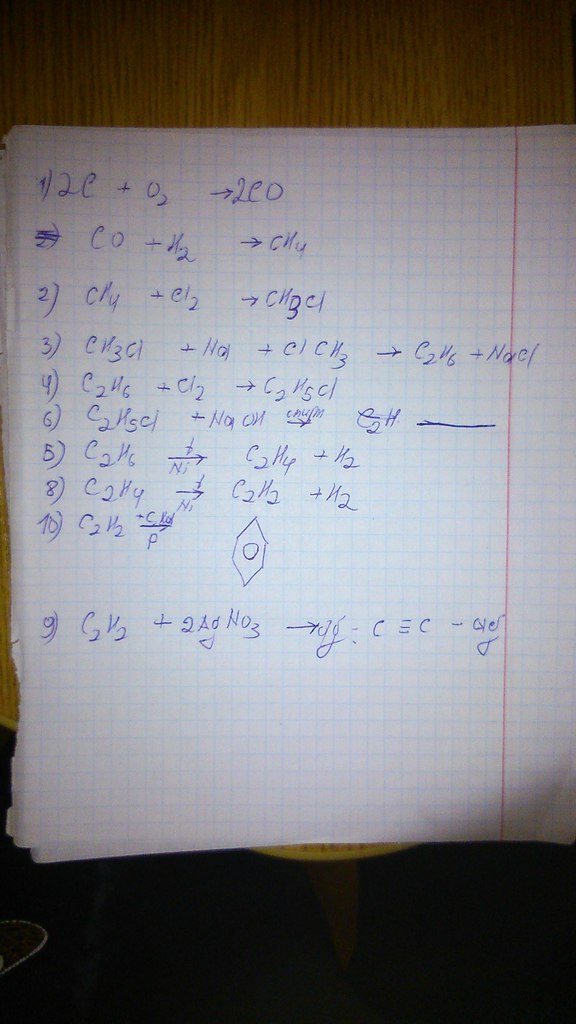 1) 2C + O2 → 2CO
CO + H2 → CH4
2) CH4 + Cl2 → CH3Cl
3) CH3Cl + Na + ClCH3 → C2H6 + NaCl
4) C2H6 + Cl2 → C2H5Cl
6) C2H5Cl + NaOH спирт →
5) C2H6 t → Ni C2H4 + H2
8) C2H4 t → Ni C2H2 + H2
10) C2H2 → P
9) C2H2 + 2AgNO3 → Ag - C ≡ C - Ag